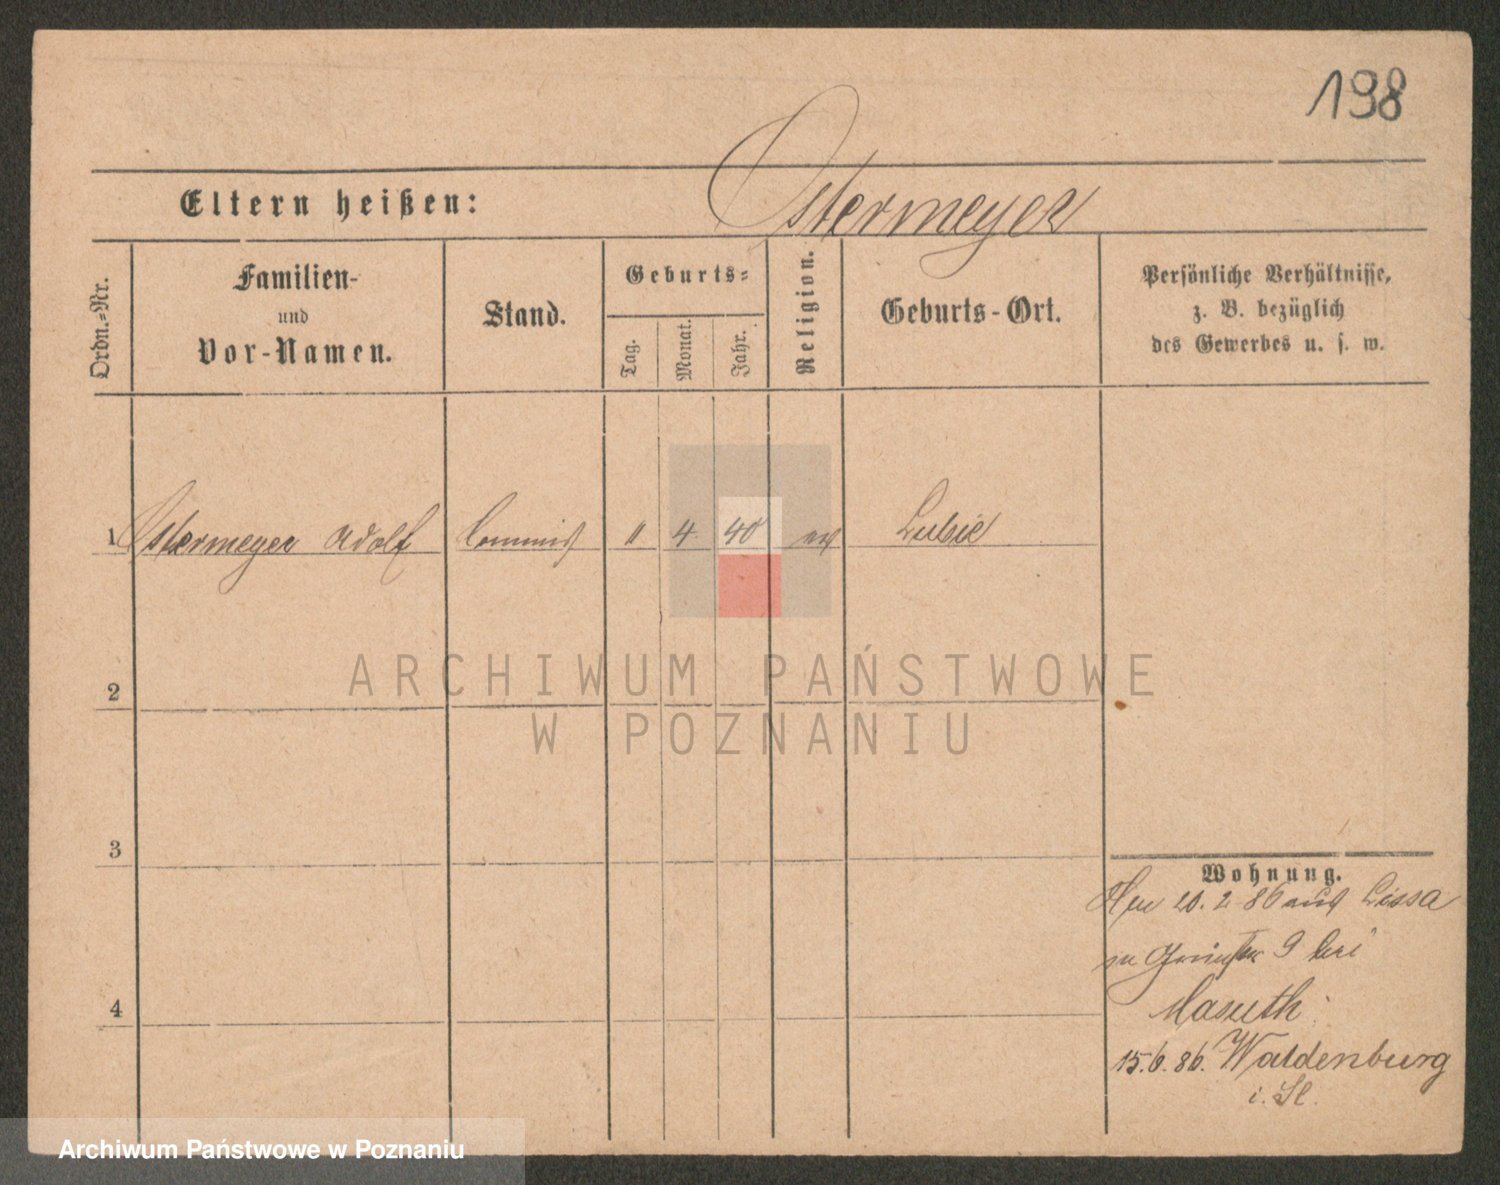 198
Eltern heißen: Ostermeyer
Ordn.-Nr.
Familien-
und
Vor-Namen.
Stand.
Geburts-
Tag.
Monat.
Jahr.
Religion.
Geburts-Ort.
Persönliche Verhältnisse,
z. B. bezüglich
des Gewerbes u. s. w.
1 Ostermeyer Adolf Commis 11 4 40 ev
ARCHIWUM PAŃSTWOWE
2
W POZNANIU
3
Wohnung.
20. 2. 86 aus Lissa
9 bei
Masuth
4
15.6.86. Waldenburg
i. Sl.
Archiwum Państwowe w Poznaniu